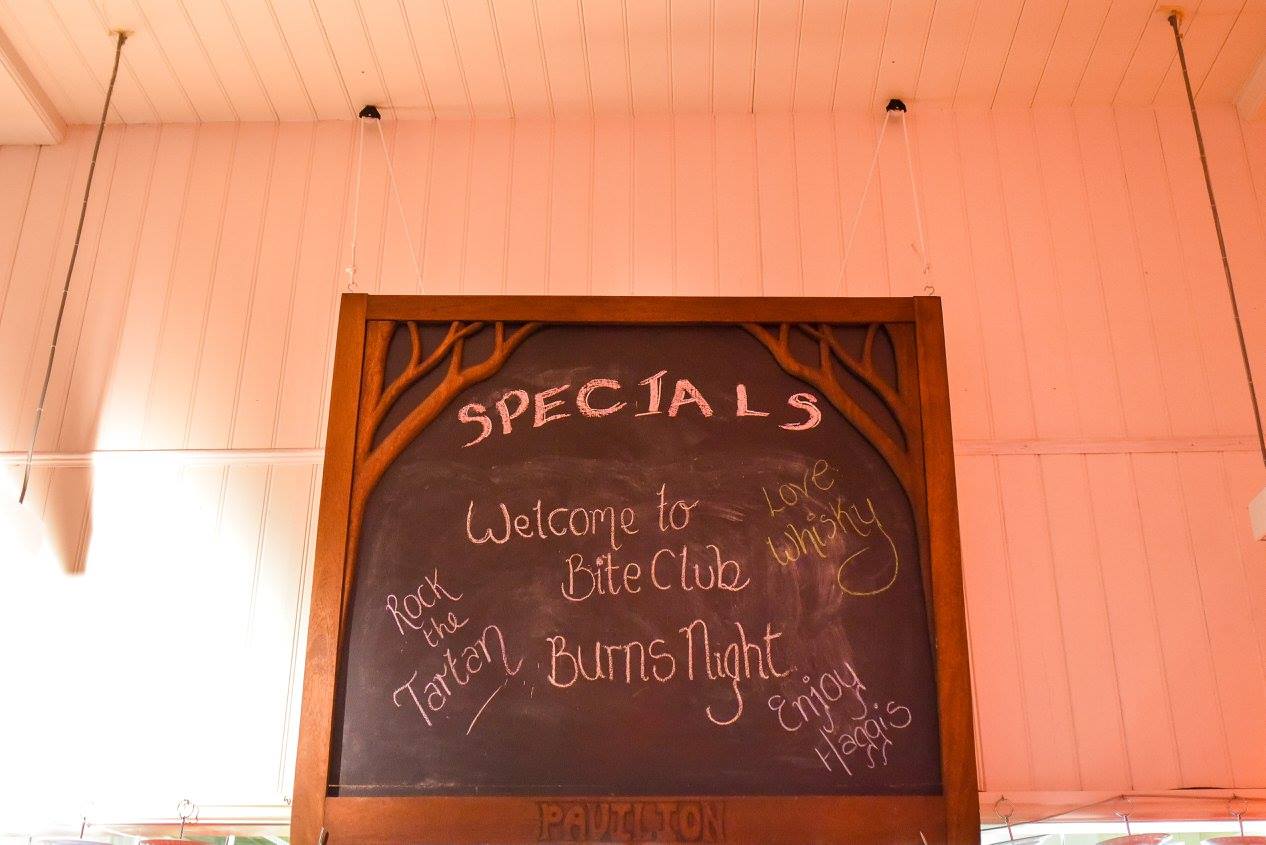 SPECIALS
Welcome to
Bite Club
Burns Night
Love
Whisky
Rock
the
Tartan
Enjoy
Haggis
PAVILION